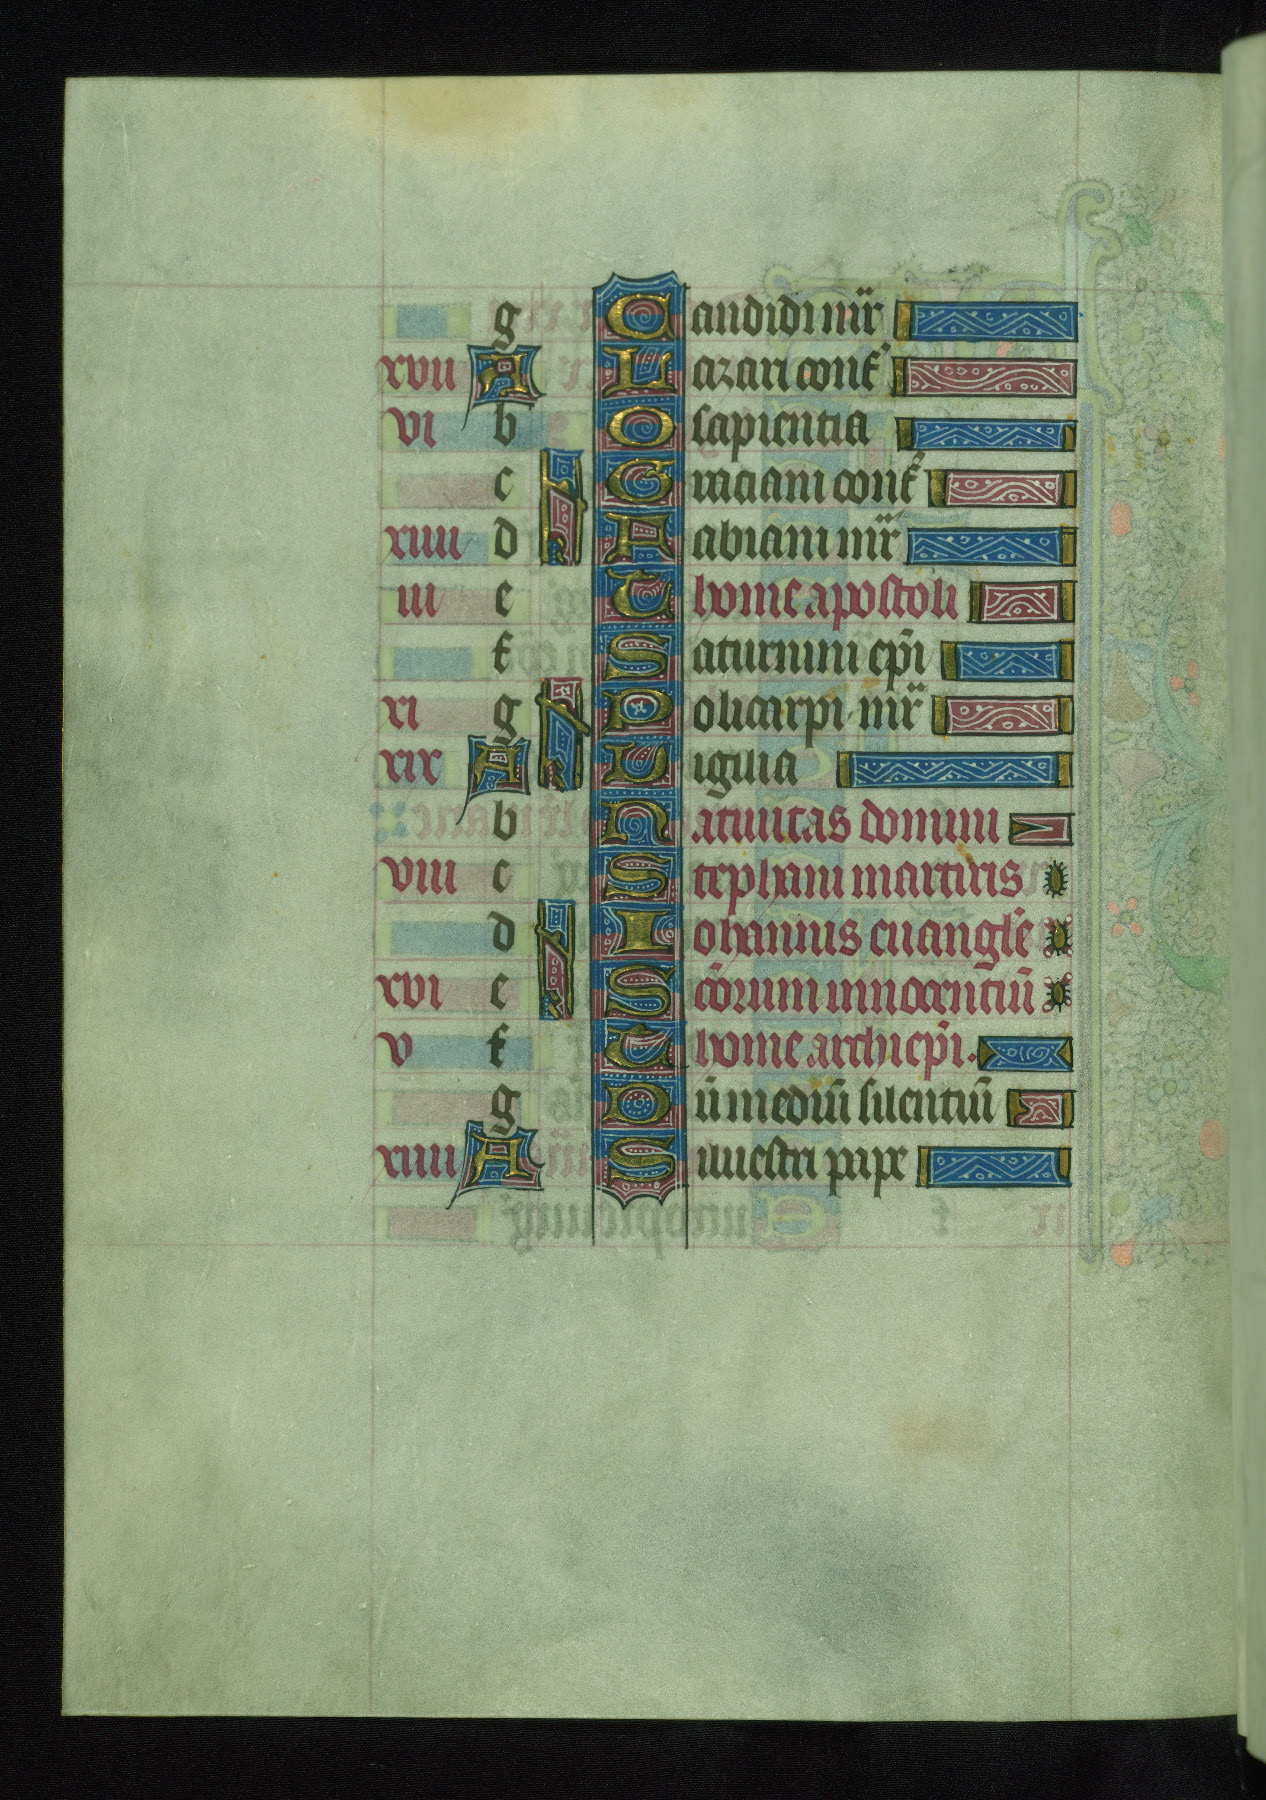 g Candidi mr̄
xvii A Lazari conf̄
vi b O sapientia
c Graciani conf̄
xiiii d Aabiani mr̄
iii e Thome apostoli
f Saturnini ep̄i
xi g Policarpi mr̄
xix A Uigilia
b Natiuitas domini
viii c Stephani martiris
d Iohannis euangl̄e
xvi e Sc̄orum innocentiū
v f Thome archiep̄i.
g Dū mediū silentiū
xiiii A Siluestri pape